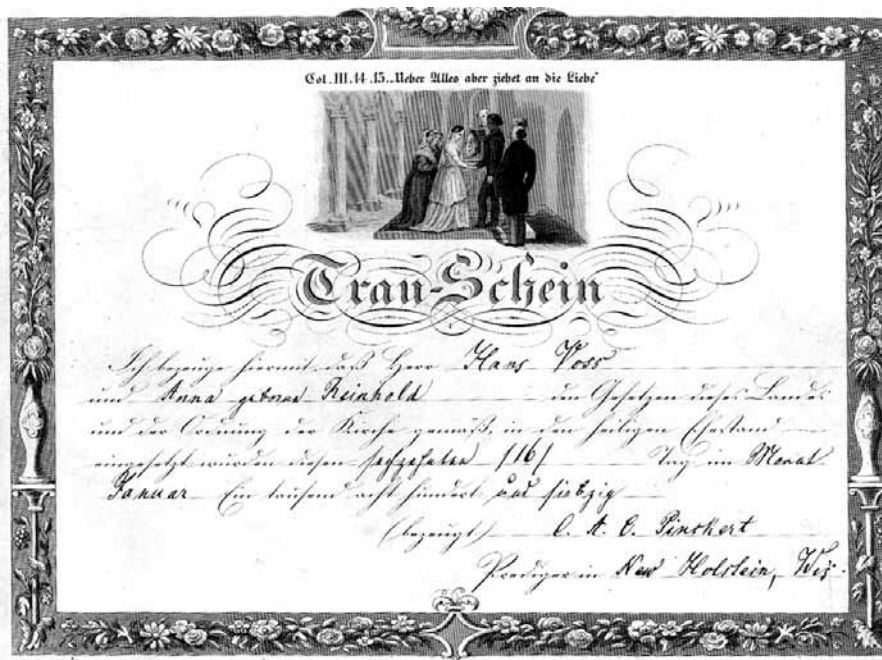 Col. III. 14-15. „Ueber Alles aber ziehet an die Liebe"
Trau-Schein
Ich bezeuge hiermit, daß Herr Hans Voss
und Anna geborne Reinhold den Gesetzen dieses Landes
und der Ordnung der Kirche gemäß, in den heiligen Ehestand
eingesetzt wurden diesen sechzehnten /16/ Tag im Monat
Januar Ein tausend acht hundert und siebzig
(bezeugt) C. A. O. Pinckert
Prediger in New Holstein, Wis.